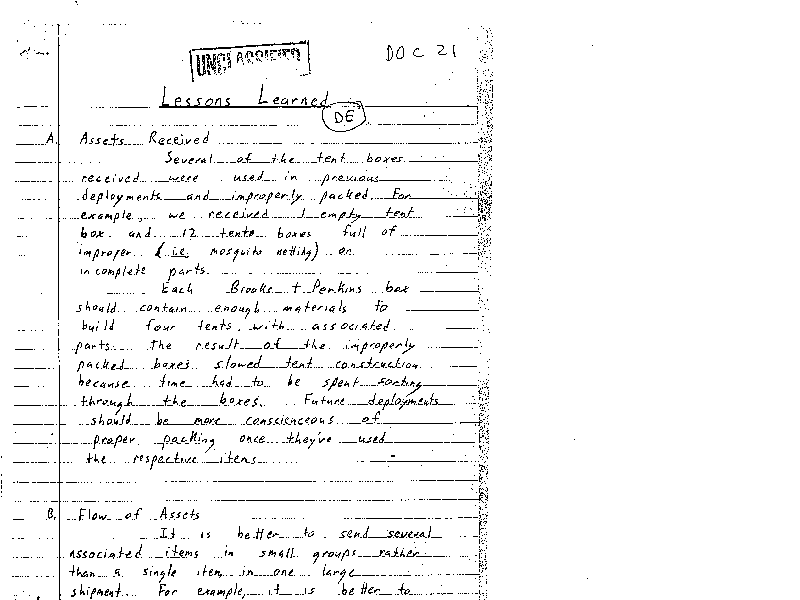 UNCLASSIFIED
DOC 21
Lessons Learned
DE
A. Assets Received
Several of the tent boxes
received were used in previous
deployments and improperly packed. For
example, we received 1 empty tent
box and 12 tents boxes full of
improper (i.e. mosquito netting) or
incomplete parts.
Each Brooks + Perkins box
should contain enough materials to
build four tents with associated
parts. the result of the improperly
packed boxes slowed tent construction
because time had to be spent sorting
through the boxes. Future deployments
should be more conscienceous of
proper packing once they've used
the respective items
B. Flow of Assets
It is better to send several
associated items in small groups rather
than a single item in one large
shipment. For example, it is better to